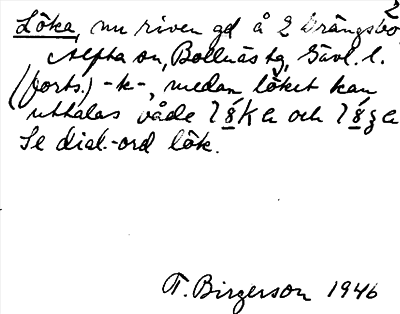 2
Löka, nu riven gd å 2 Drängsbo
Alfta sn, Bollnäs tg, Gävl. l.
(forts.) -k-, medan löket kan
uttalas både och
Se dial.-ord lök.
T. Birgerson 1946